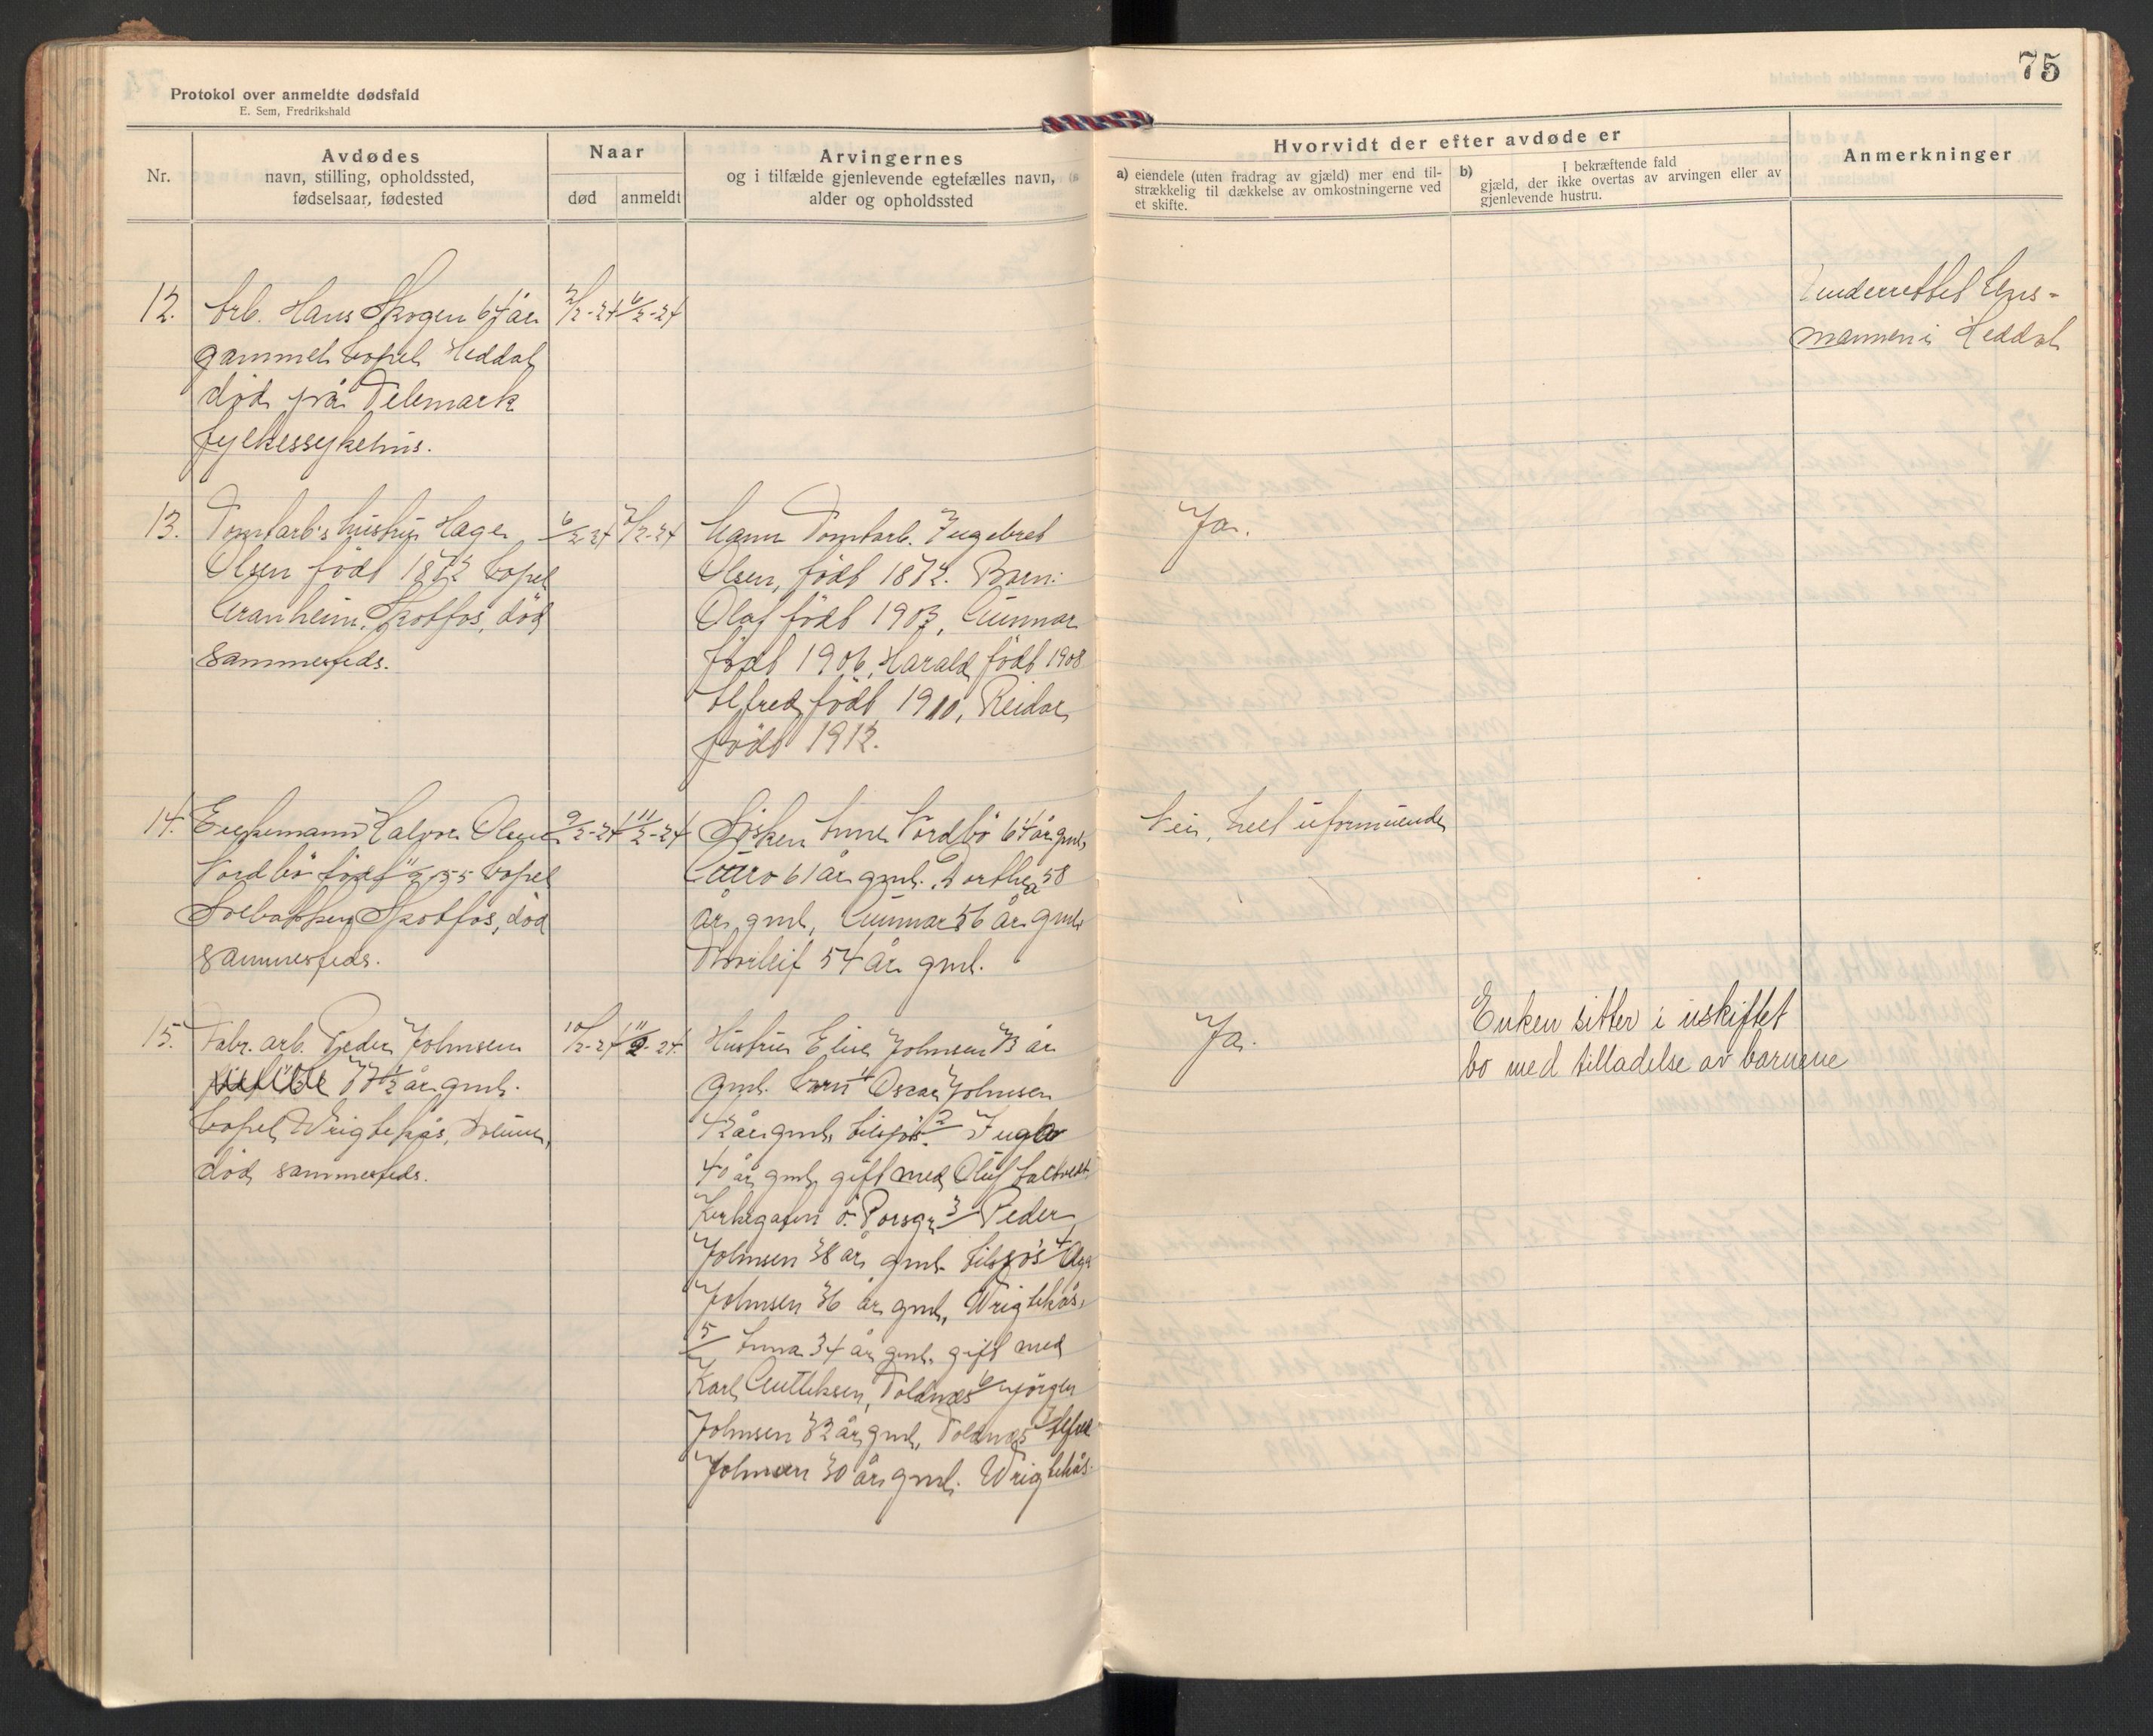 75
Protokol over anmeldte dødsfald
E. Sem, Fredrikshald
Nr.
Avdødes
navn, stilling, opholdssted,
fødselsaar, fødested
Naar
død
anmeldt
Arvingernes
og i tilfælde gjenlevende egtefælles navn,
alder og opholdssted
Hvorvidt der efter avdøde er
a) eiendele (uten fradrag av gjæld) mer end til-
strækkelig til dækkelse av omkostningerne ved
et skifte.
b) I bekræftende fald
gjæld, der ikke overtas av arvingen eller av
gjenlevende hustru.
Anmerkninger
12.
Arb. Hans Skogen 64 år
gammel bopel Heddal
død på Telemark
fylkessykehus.
2/2-24
6/2-24
Underrettet Lens-
mannen i Heddal
13.
Tomtarb.s hustru Hage
Olsen født 1872 bopel
Granheim, Skotfos, død
sammesteds.
6/2-24
7/2-24
Mann Tomtarb. Ingebret
Olsen, født 1872. Barn:
Olaf født 1903, Gunnar
født 1906, Harald født 1908
Alfred født 1910, Reidar
født 1912.
Ja.
14.
Enkemann Halvor Olsen
Nordbö født 55 bopel
Solbakken Skotfos, död
sammesteds.
9/2-24
11/2-24
Søsken Anne Nordbö 64 år gml,
Guro 61 år gml. Dorthea 58
år gml, Gunnar 56 år gml
Thorleif 54 år gml.
Nei, helt uformuende
15.
Fabr. arb. Peder Johnsen
77 1/2 år gml.
bopel Wrigtehås, Solum,
død sammesteds.
10/2-24
11/2-24.
Hustru Elise Johnsen 73 år
gml. barn 1/ Oscar Johnsen
42 år gml, tilsjös. 2/ Inga
40 år gml, gift med Oluf
Kirkegaten ö. Porsgr 3/ Peder
Johnsen 38 år gml. tilsjös 4/
Johnsen 36 år gml, Wrigtehås,
5/ Anna 34 år gml. gift med
Karl Gulliksen, Toldnæs 6/ Jørgen
Johnsen 32 år gml, Toldnæs 7/ Alfred
Johnsen 30 år gml. Wrigtehås.
Ja.
Enken sitter i uskiftet
bo med tilladelse av barnene